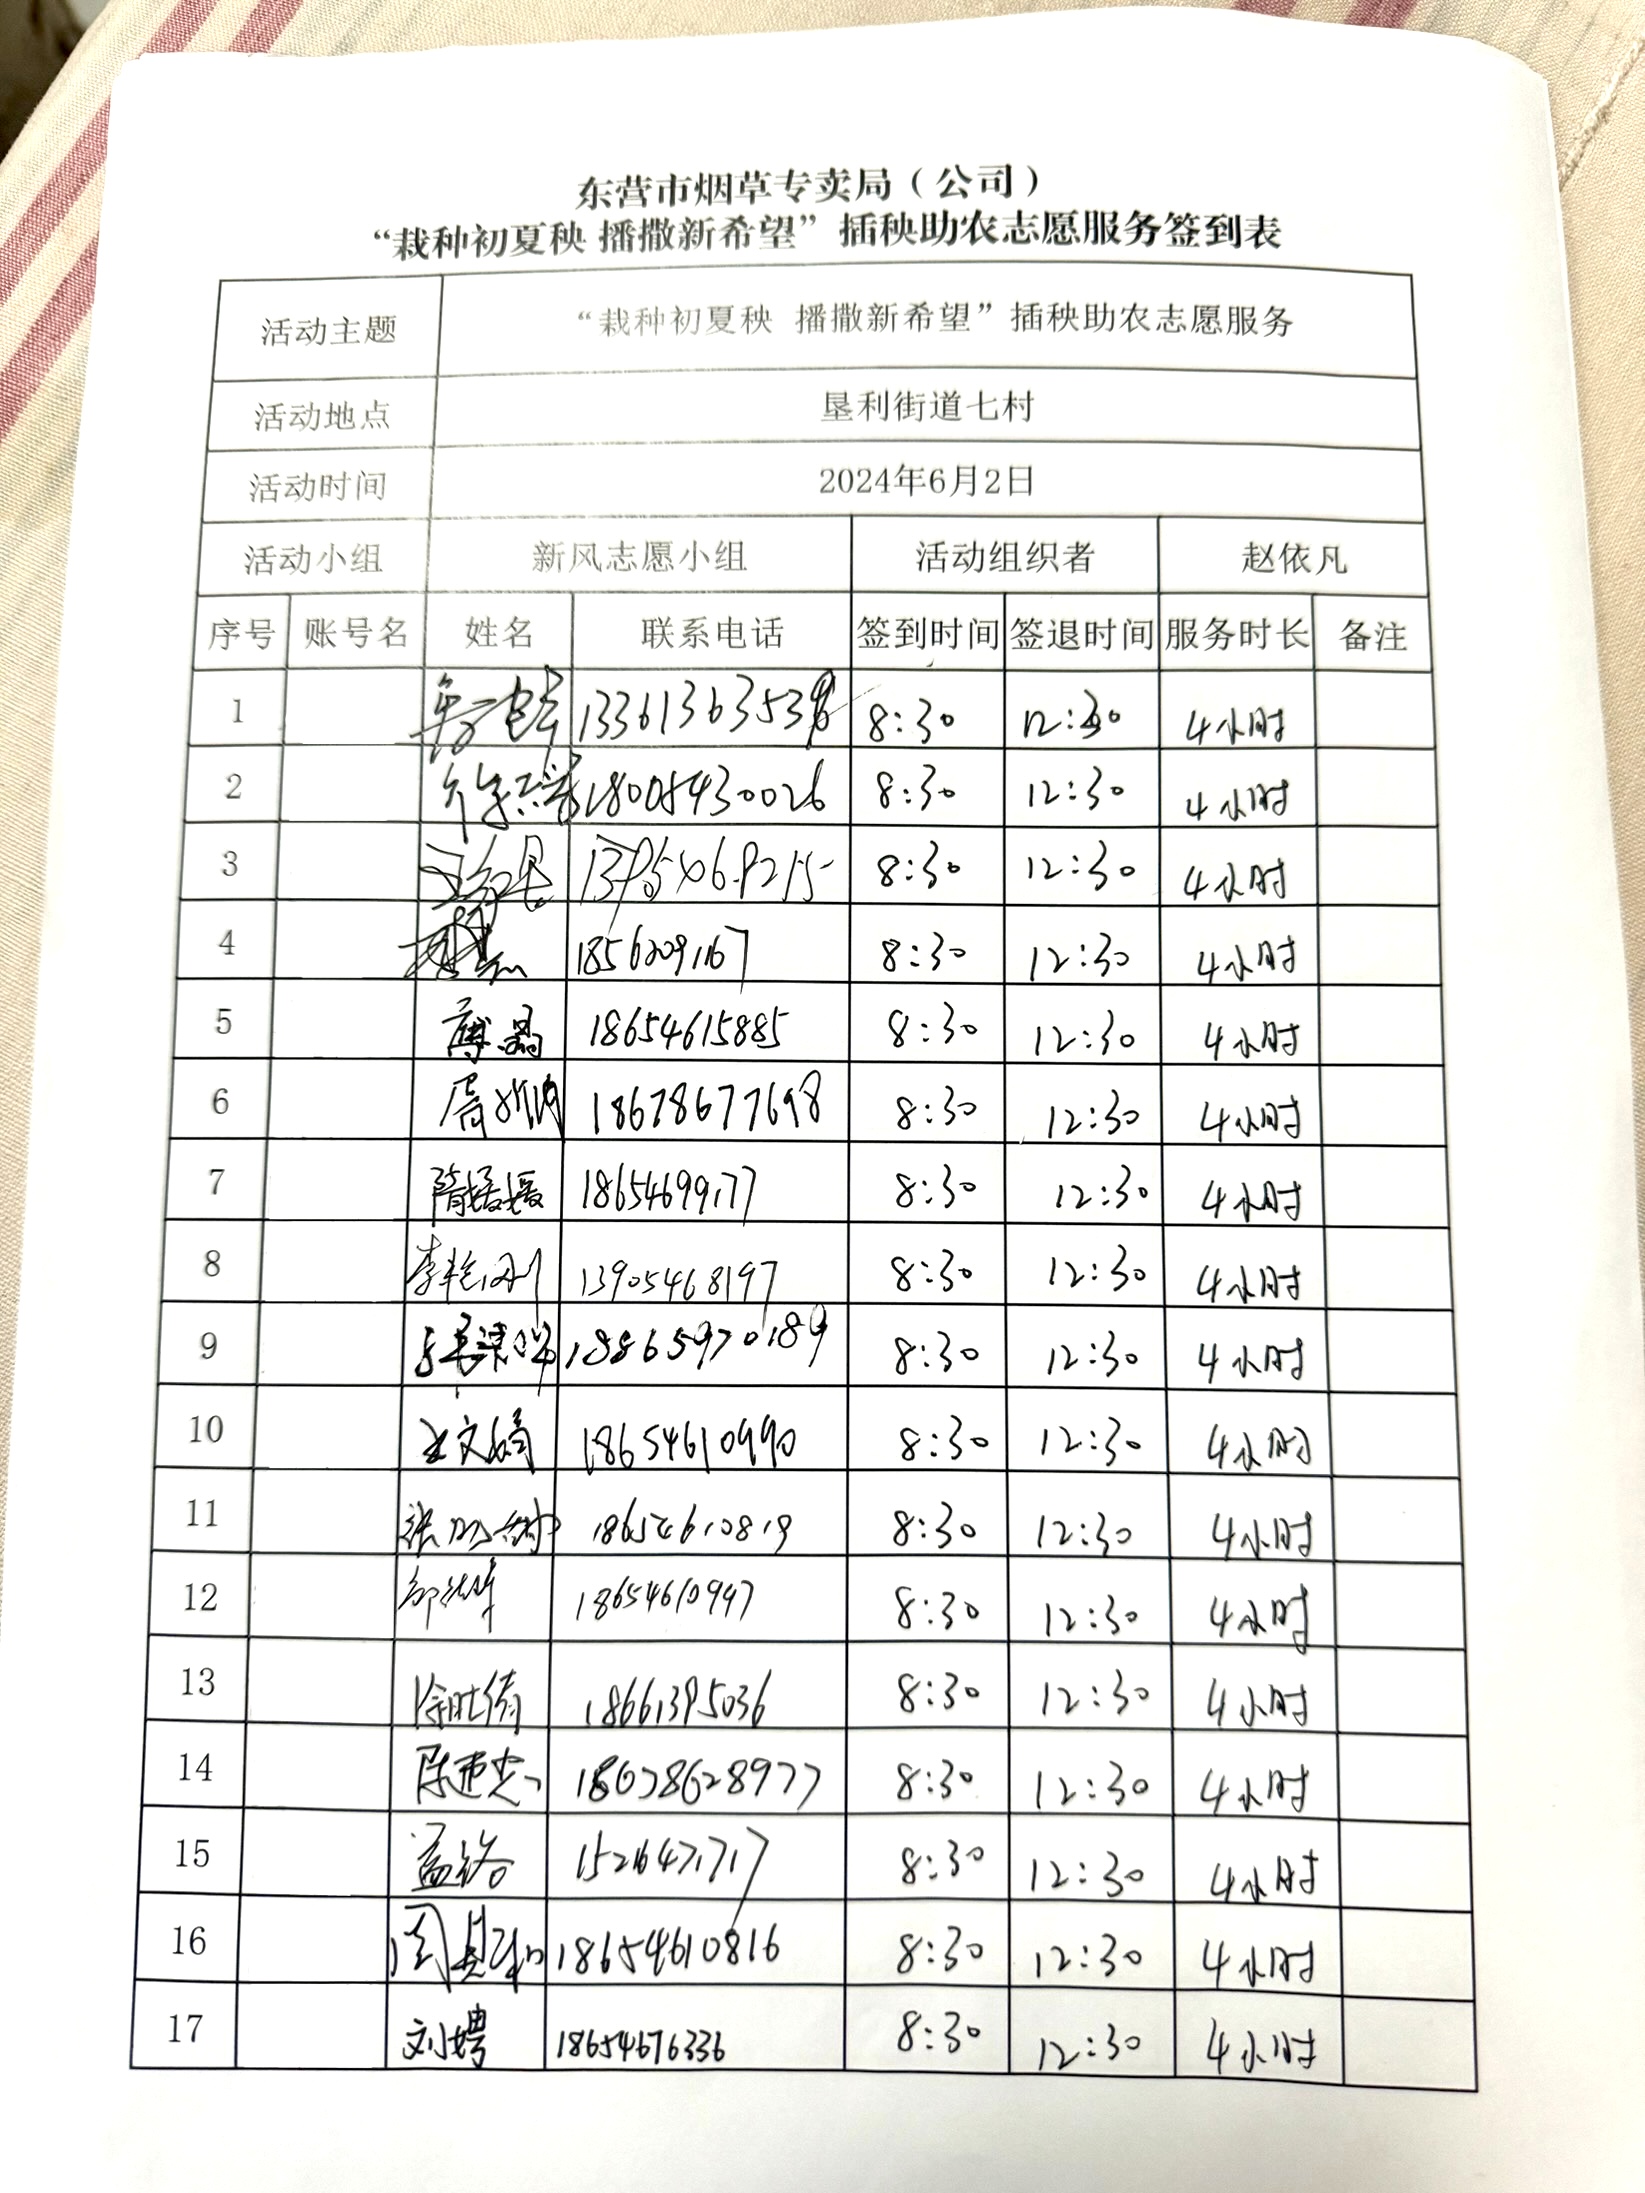 东营市烟草专卖局（公司）
“栽种初夏秧 播撒新希望”插秧助农志愿服务签到表
活动主题 “栽种初夏秧 播撒新希望”插秧助农志愿服务
活动地点 垦利街道七村
活动时间 2024年6月2日
活动小组 新风志愿小组 活动组织者 赵依凡
序号 账号名 姓名 联系电话 签到时间 签退时间 服务时长 备注
1 8:30 12:30 4小时
2 18005430026 8:30 12:30 4小时
3 8:30 12:30 4小时
4 8:30 12:30 4小时
5 18654615885 8:30 12:30 4小时
6 18678677698 8:30 12:30 4小时
7 隋媛媛 18654699177 8:30 12:30 4小时
8 13905468197 8:30 12:30 4小时
9 18865970189 8:30 12:30 4小时
10 王文娟 18654610990 8:30 12:30 4小时
11 18654610819 8:30 12:30 4小时
12 18654610947 8:30 12:30 4小时
13 18661395036 8:30 12:30 4小时
14 18678628977 8:30 12:30 4小时
15 8:30 12:30 4小时
16 18654610816 8:30 12:30 4小时
17 刘娉 18654676336 8:30 12:30 4小时